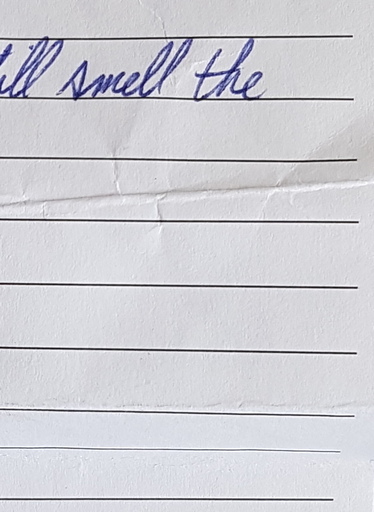 ill smell the